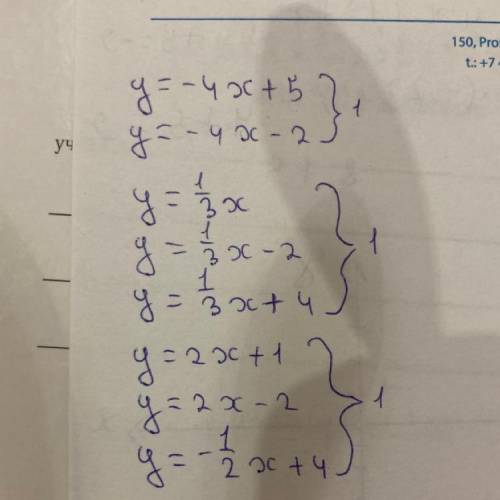 150, Pro
t.: +7
y = -4x + 5 } 1
y = -4x - 2
уч
y = 1/3 x
y = 1/3 x - 2 } 1
y = 1/3 x + 4
y = 2x + 1
y = 2x - 2 } 1
y = -1/2 x + 4